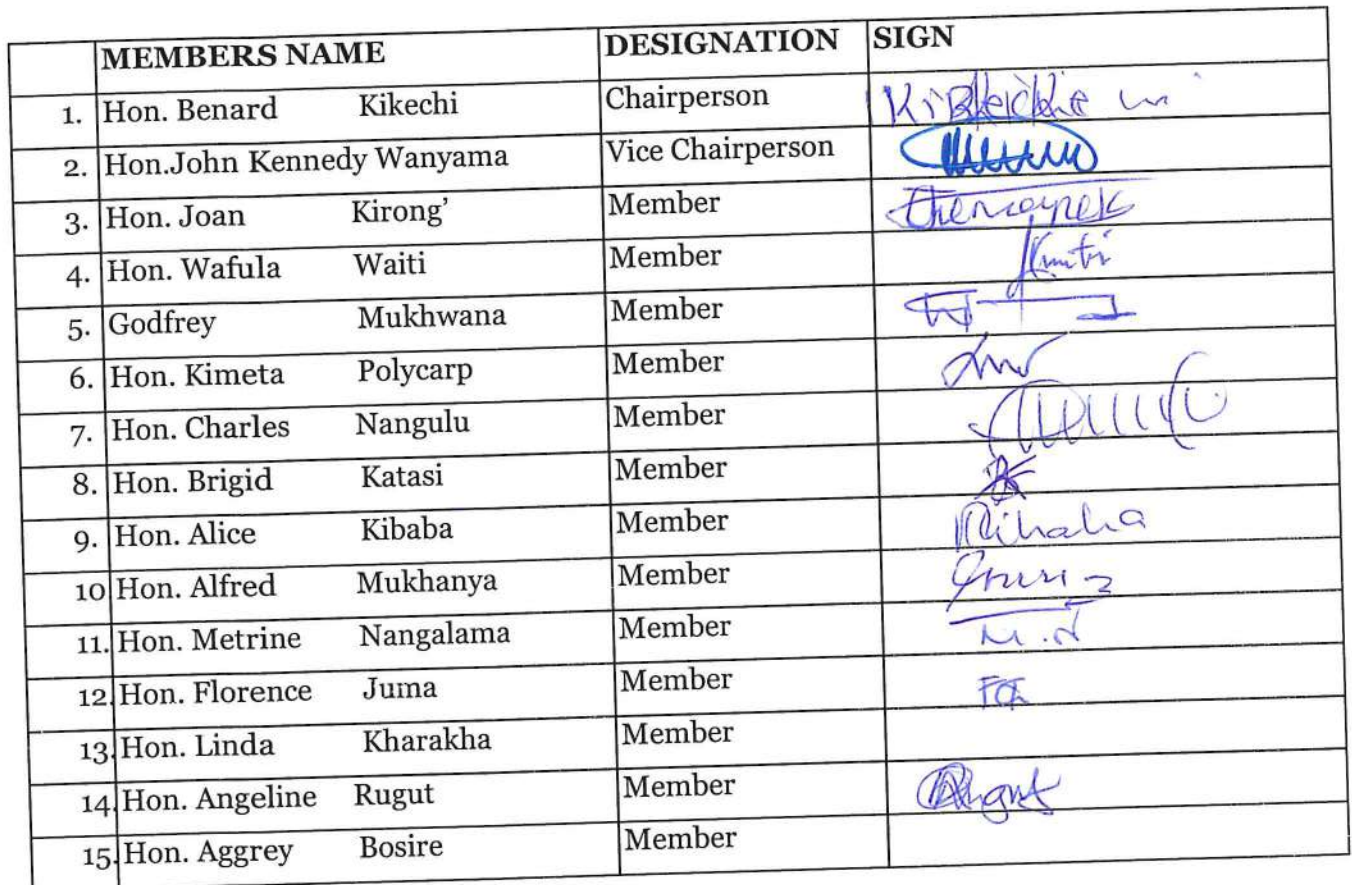 MEMBERS NAME DESIGNATION SIGN
1. Hon. Benard Kikechi Chairperson
2. Hon.John Kennedy Wanyama Vice Chairperson
3. Hon. Joan Kirong' Member
4. Hon. Wafula Waiti Member
5. Godfrey Mukhwana Member
6. Hon. Kimeta Polycarp Member
7. Hon. Charles Nangulu Member
8. Hon. Brigid Katasi Member
9. Hon. Alice Kibaba Member
10 Hon. Alfred Mukhanya Member
11. Hon. Metrine Nangalama Member M.N
12. Hon. Florence Juma Member
13. Hon. Linda Kharakha Member
14. Hon. Angeline Rugut Member Rugut
15. Hon. Aggrey Bosire Member